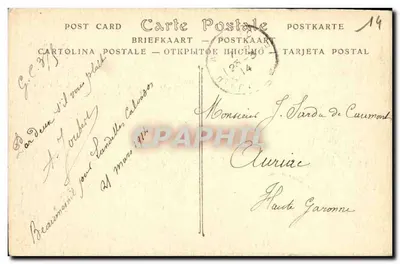 POST CARD Carte Postale POSTKARTE
BRIEFKAART — POSTKAART
CARTOLINA POSTALE — ОТКРЫТОЕ ПИСЬМО — TARJETA POSTAL
14
25-3
14
G.C.
Par deux s'il vous plait
A.
pour Landelles Calvados
21 mars 1914
Monsieur J. Sarda de Caumont
Auriac
Haute Garonne
CPAPHIL.com